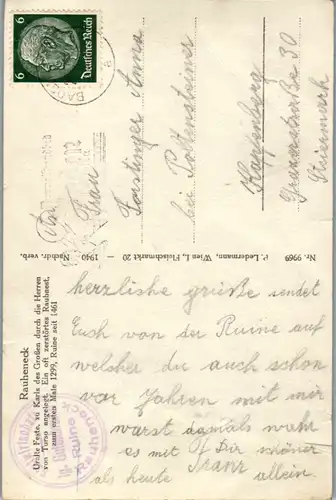 6
Deutsches Reich
6
BADEN
An
Frau
Forstinger Anna
bei Pottensteiner
Kapfenberg
Grazerstraße 30
Steiermark
Rauheneck
Urälte Feste, zu Karls des Großen durch die Herren
von Turso angelegt. Ein oft zerstörtes Raubnest,
zum ersten Male 1299, Ruine seit 1461
Nachdr. verb. — 1940 — P. Ledermann, Wien I., Fleischmarkt 20 — Nr. 9969
herzliche grüße sendet
Euch von der Ruine auf
welcher du auch schon
vor Jahren mit mir
warst damals wahr
es mit Dir schöner
als heute allein.
Franz
Ruine
Rauheneck